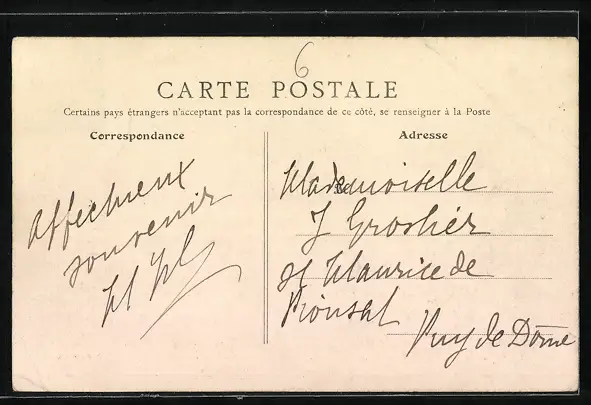 6
CARTE POSTALE
Certains pays étrangers n'acceptant pas la correspondance de ce côté, se renseigner à la Poste
Correspondance
Affectueux
souvenir
Adresse
Mademoiselle
J Groslier
St Maurice de
Pionsat
Puy de Dôme